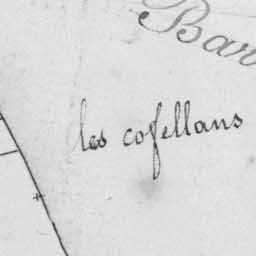 Bar
les cofellans